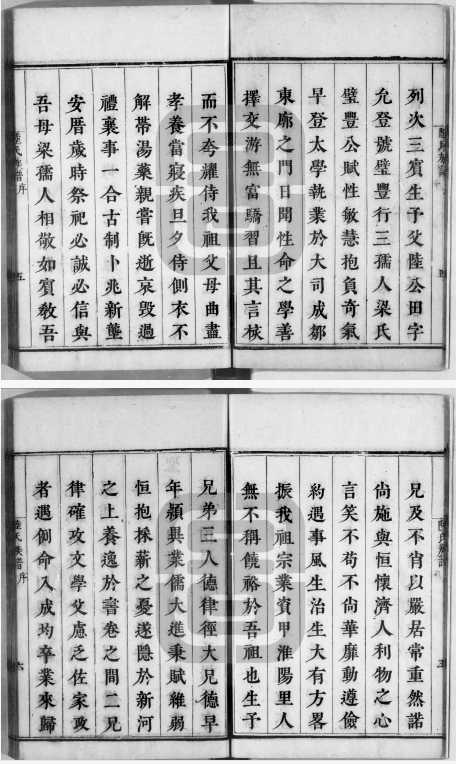 列次三賓生予父陸公田字
允登號璧豐行三孺人梁氏
璧豐公賦性敏慧抱負奇氣
早登太學執業於大司成鄒
東廓之門日聞性命之學善
擇交游無富驕習且其言核
而不夸耀侍我祖父母曲盡
孝養當寢疾旦夕侍側衣不
解帶湯藥親嘗旣逝哀毀過
禮襄事一合古制卜兆新塋
安厝歲時祭祀必誠必信與
吾母梁孺人相敬如賓教吾
陸氏族譜序 五
兄及不肖以嚴居常重然諾
尚施與恒懷濟人利物之心
言笑不苟不尚華靡動遵儉
約遇事風生治生大有方畧
振我祖宗業資甲淮陽里人
無不稱饒裕於吾祖也生予
兄弟三人德律徑大兄德早
年頴異業儒大進秉賦稚弱
恒抱採薪之憂遂隱於新河
之上養逸於書卷之間二兄
律確攻文學父慮乏佐家政
者遇例命入成均卒業來歸
陸氏族譜序 六